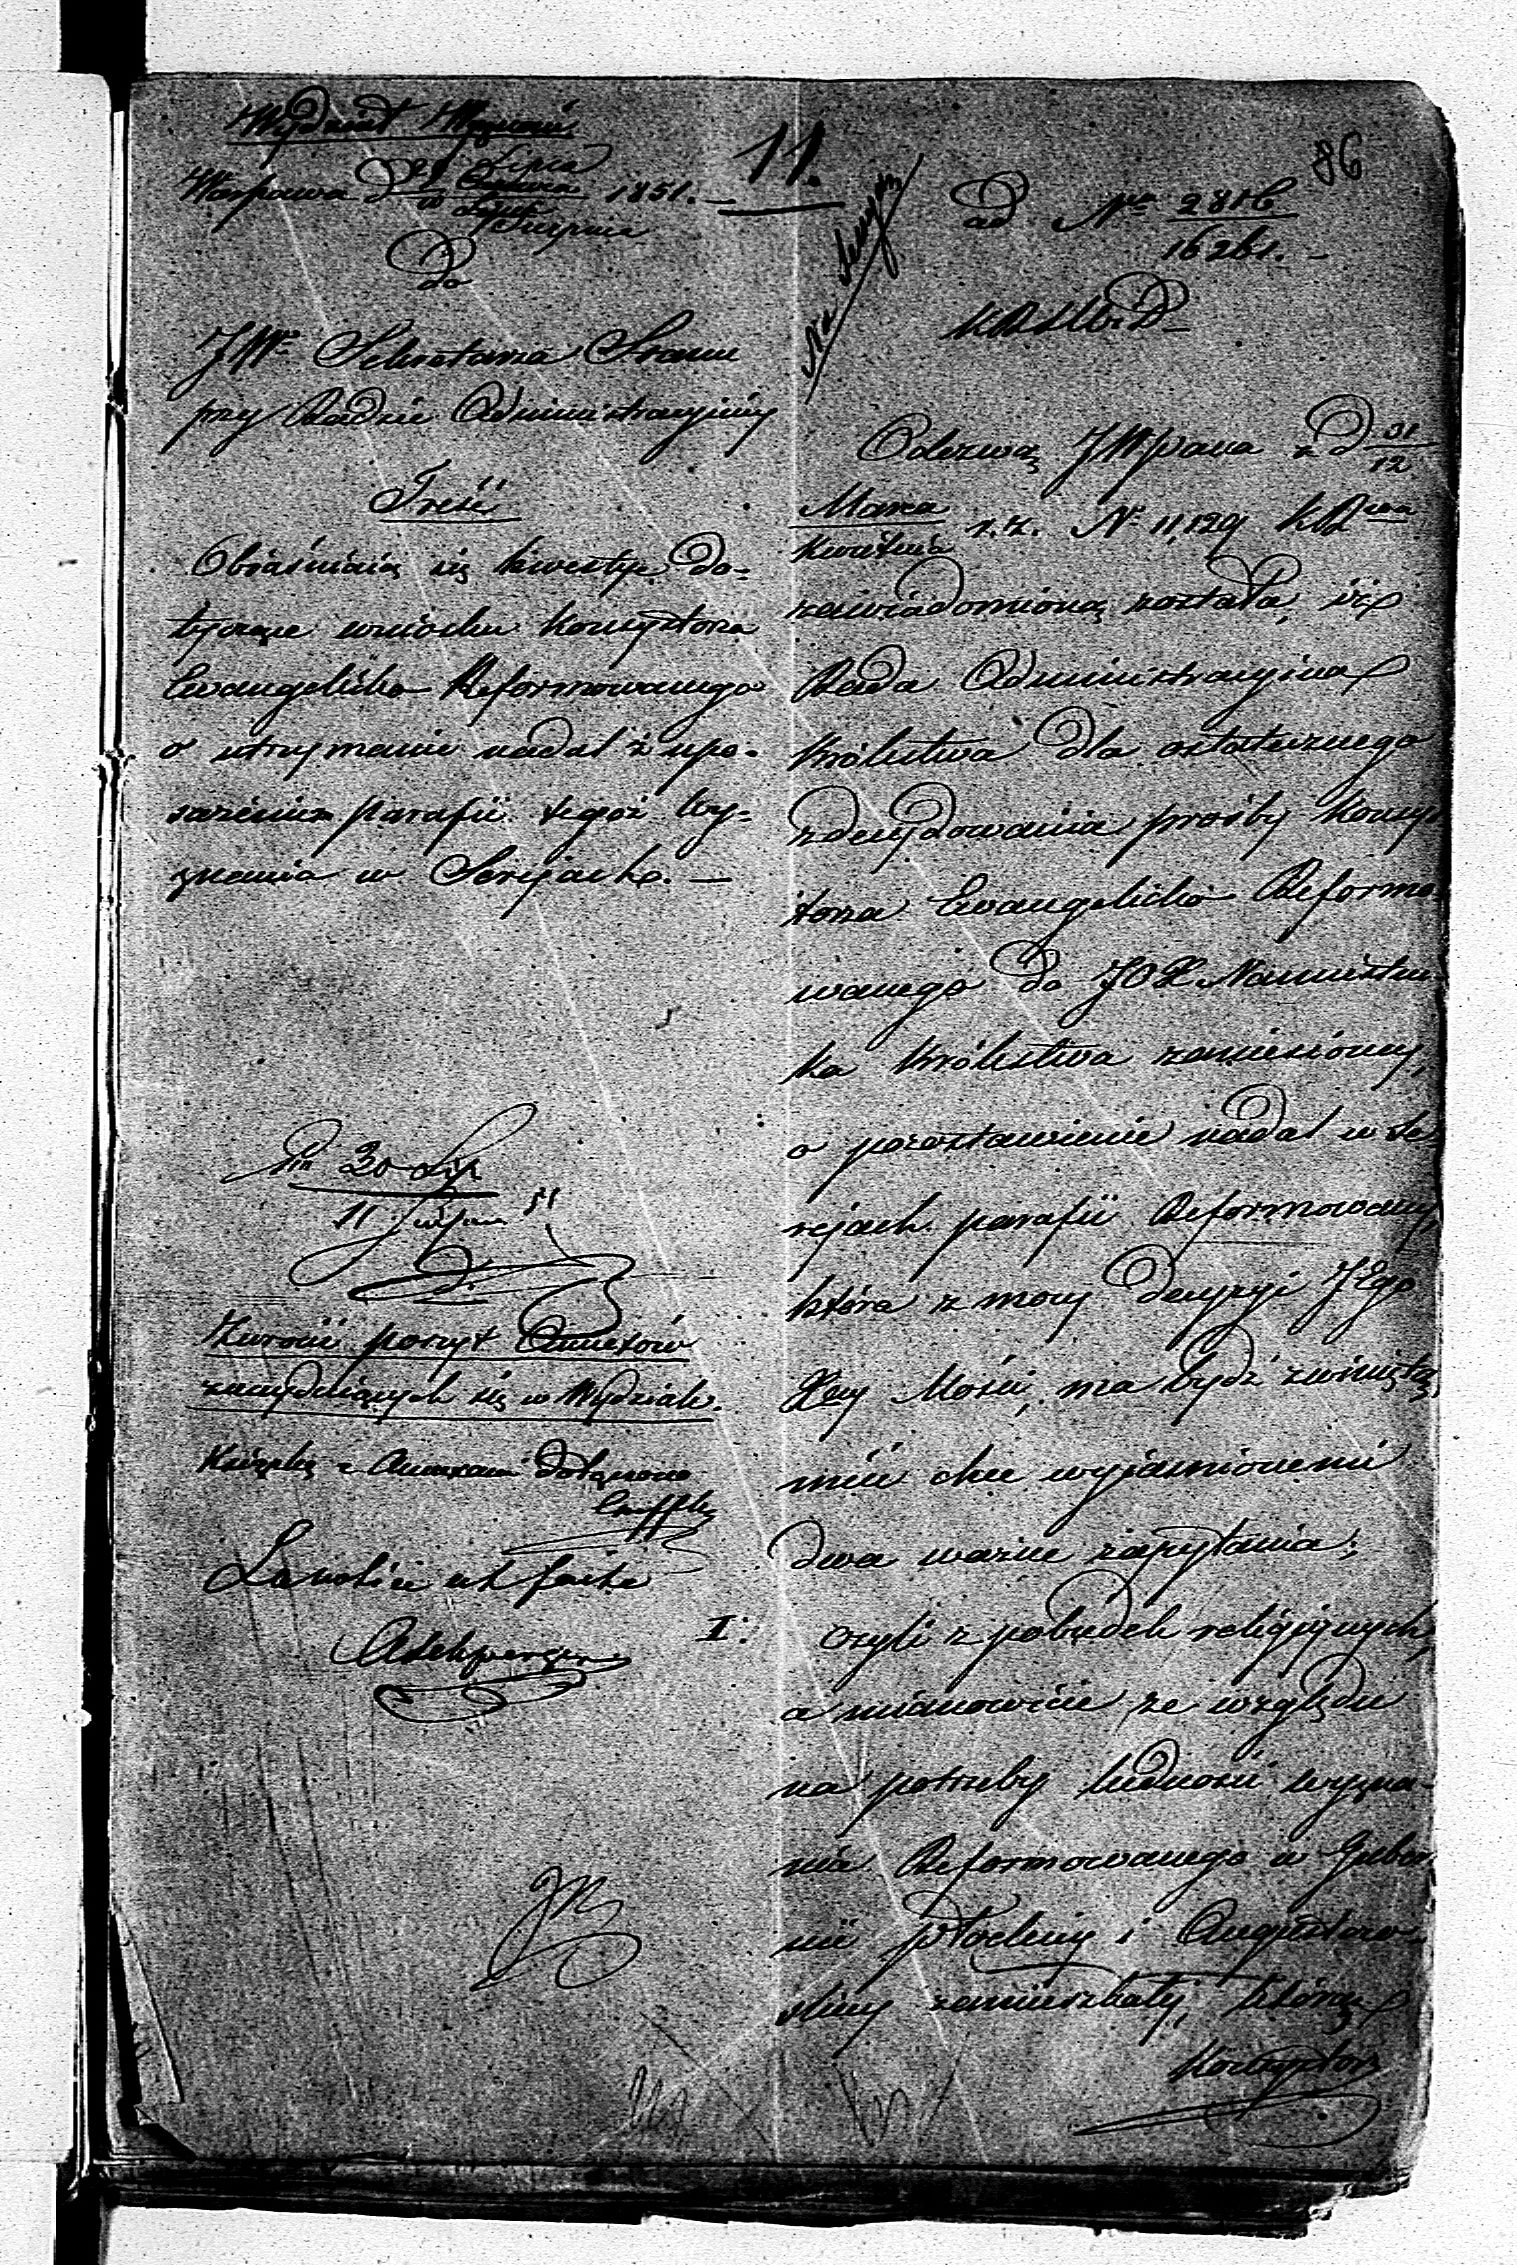 Wydział Wyznań
Warszawa d 1851. —
Lipca
Sierpnia
11.
86
do
ad Nr 2816
16261. —
JWo Sekretarza Stanu
przy Radzie Administracyjnéy
Treść
Obiaśniaią się kwestye do-
tyczące wniosku Konsystorza
Ewangelicko Reformowanego
o utrzymanie nadal z upo-
sażeniem parafii tegoż wy-
znania w Serejach. —
30 Lip
11 Sierpnia 51
Zwrócić poszyt Annexów
znayduiących się w Wydziale.
Książkę z Annexami dołączono
Odezwą JWPana z d 31
12
Marca
Kwietnia r. z. N 11,129 KR
zawiadomioną została, iż
Rada Administracyjna
Królestwa dla ostatecznego
zdecydowania prośby Konsy-
storza Ewangelicko Reformo
wanego do JOX Namiestni
ka Królestwa zaniesionéy,
o pozostawienie nadal w Se
rejach parafii Reformowanéy,
która z mocy decyzyi JEgo
Xcéy Mości, ma bydź zwiniętą,
mieć chce wyjaśnionemi
dwa ważne zapytania;
I: czyli z pobudek religijnych,
a mianowicie ze względu
na potrzeby ludności wyzna-
nia Reformowanego w Guber
nii Płockiéy i Augustow-
skiéy zamieszkałéy, którą
Konsystorz